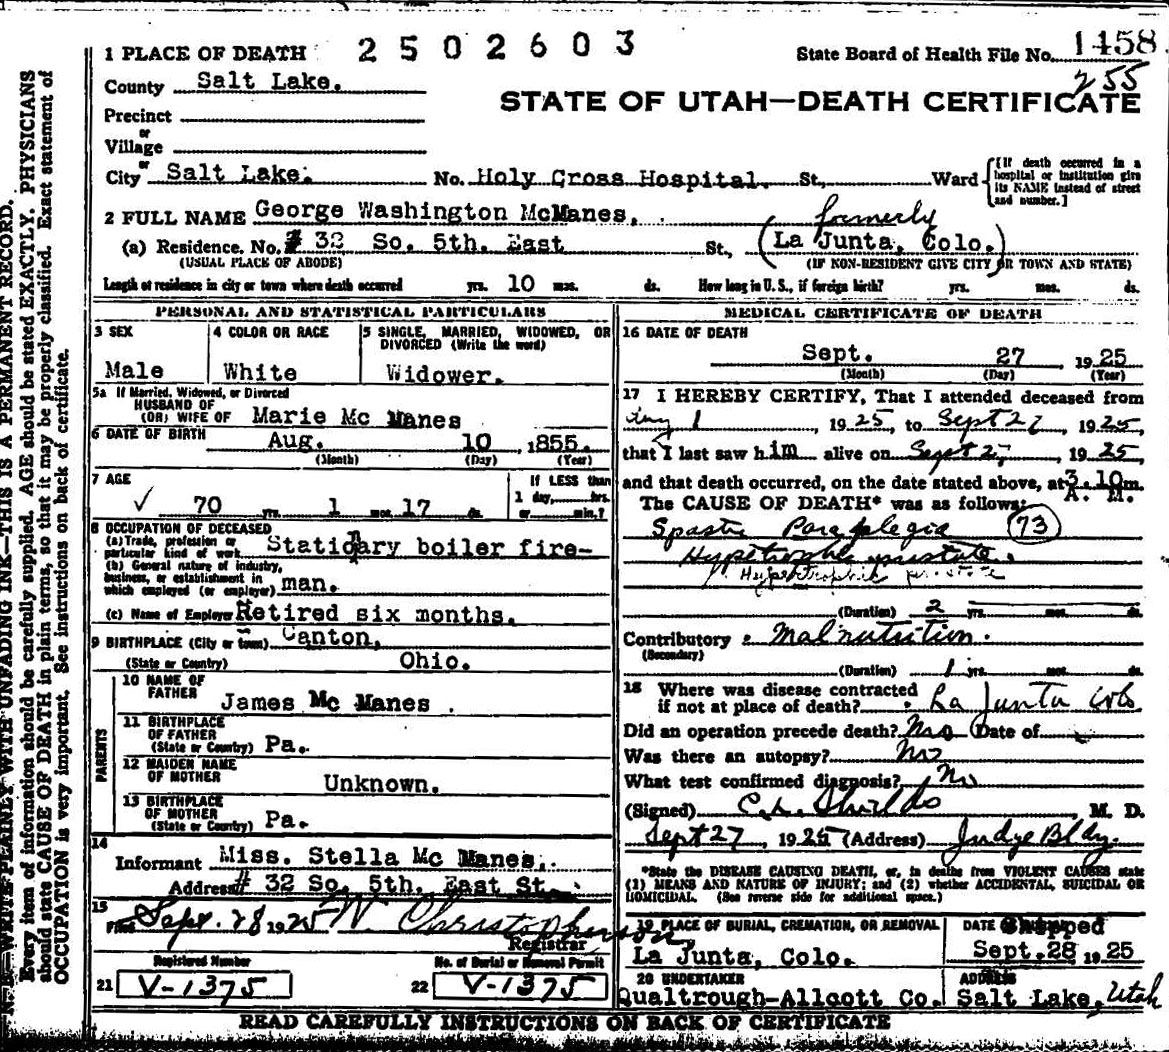 1 PLACE OF DEATH 2502603 State Board of Health File No. 1458
255
County Salt Lake.
STATE OF UTAH—DEATH CERTIFICATE
Precinct
or
Village
or
City Salt Lake. No. Holy Cross Hospital. St., Ward {[If death occurred in a hospital or institution give its NAME instead of street and number.]
2 FULL NAME George Washington McManes.
formerly
(a) Residence. No. # 32 So. 5th. East St., (La Junta, Colo.)
(USUAL PLACE OF ABODE) (IF NON-RESIDENT GIVE CITY OR TOWN AND STATE)
Length of residence in city or town where death occurred yrs. 10 mos. ds. How long in U. S., if foreign birth? yrs. mos. ds.
PERSONAL AND STATISTICAL PARTICULARS
3 SEX
Male
4 COLOR OR RACE
White
5 SINGLE, MARRIED, WIDOWED, OR
DIVORCED (Write the word)
Widower.
5a If Married, Widowed, or Divorced
HUSBAND OF
(OR) WIFE OF Marie Mc Manes
6 DATE OF BIRTH Aug. 10 , 1855.
(Month) (Day) (Year)
7 AGE
✓ 70 yrs. 1 mos. 17 ds.
If LESS than
1 day, hrs.
or min.?
8 OCCUPATION OF DECEASED
(a) Trade, profession or
particular kind of work Stationary boiler fire-
(b) General nature of industry,
business, or establishment in
which employed (or employer) man.
(c) Name of Employer Retired six months.
9 BIRTHPLACE (City or town) Canton,
(State or Country) Ohio.
PARENTS
10 NAME OF
FATHER
James Mc Manes .
11 BIRTHPLACE
OF FATHER
(State or Country) Pa.
12 MAIDEN NAME
OF MOTHER
Unknown.
13 BIRTHPLACE
OF MOTHER
(State or Country) Pa.
14
Informant Miss. Stella Mc Manes.
Address # 32 So. 5th. East St.
15
Filed Sept. 28 1925 W. Christopherson
Registrar
Registered Number No. of Burial or Removal Permit
21 V-1375 22 V-1375
MEDICAL CERTIFICATE OF DEATH
16 DATE OF DEATH
Sept. 27 1925
(Month) (Day) (Year)
17 I HEREBY CERTIFY, That I attended deceased from
1 , 1925, to Sept 27 , 1925,
that I last saw him alive on Sept 27, 1925,
and that death occurred, on the date stated above, at 3.10 m.
A. M.
The CAUSE OF DEATH* was as follows:
Spastic Paraplegia (73)
Hypertrophic prostate.
Hypertrophic prostate
(Duration) 2 yrs. mos. ds.
Contributory Malnutrition.
(Secondary)
(Duration) 1 yrs. mos. ds.
18 Where was disease contracted
if not at place of death? La Junta Colo
Did an operation precede death? No Date of
Was there an autopsy? No
What test confirmed diagnosis? No
(Signed) C. L. Shields M. D.
Sept 27 , 1925 (Address) Judge Bldg.
*State the DISEASE CAUSING DEATH, or, in deaths from VIOLENT CAUSES state
(1) MEANS AND NATURE OF INJURY; and (2) whether ACCIDENTAL, SUICIDAL OR
HOMICIDAL. (See reverse side for additional space.)
19 PLACE OF BURIAL, CREMATION, OR REMOVAL
La Junta, Colo.
DATE Shipped
Sept. 28 1925
20 UNDERTAKER
Qualtrough-Allcott Co.
ADDRESS
Salt Lake, Utah
READ CAREFULLY INSTRUCTIONS ON BACK OF CERTIFICATE
N. B.—WRITE PLAINLY WITH UNFADING INK—THIS IS A PERMANENT RECORD.
Every item of information should be carefully supplied. AGE should be stated EXACTLY. PHYSICIANS
should state CAUSE OF DEATH in plain terms, so that it may be properly classified. Exact statement of
OCCUPATION is very important. See instructions on back of certificate.